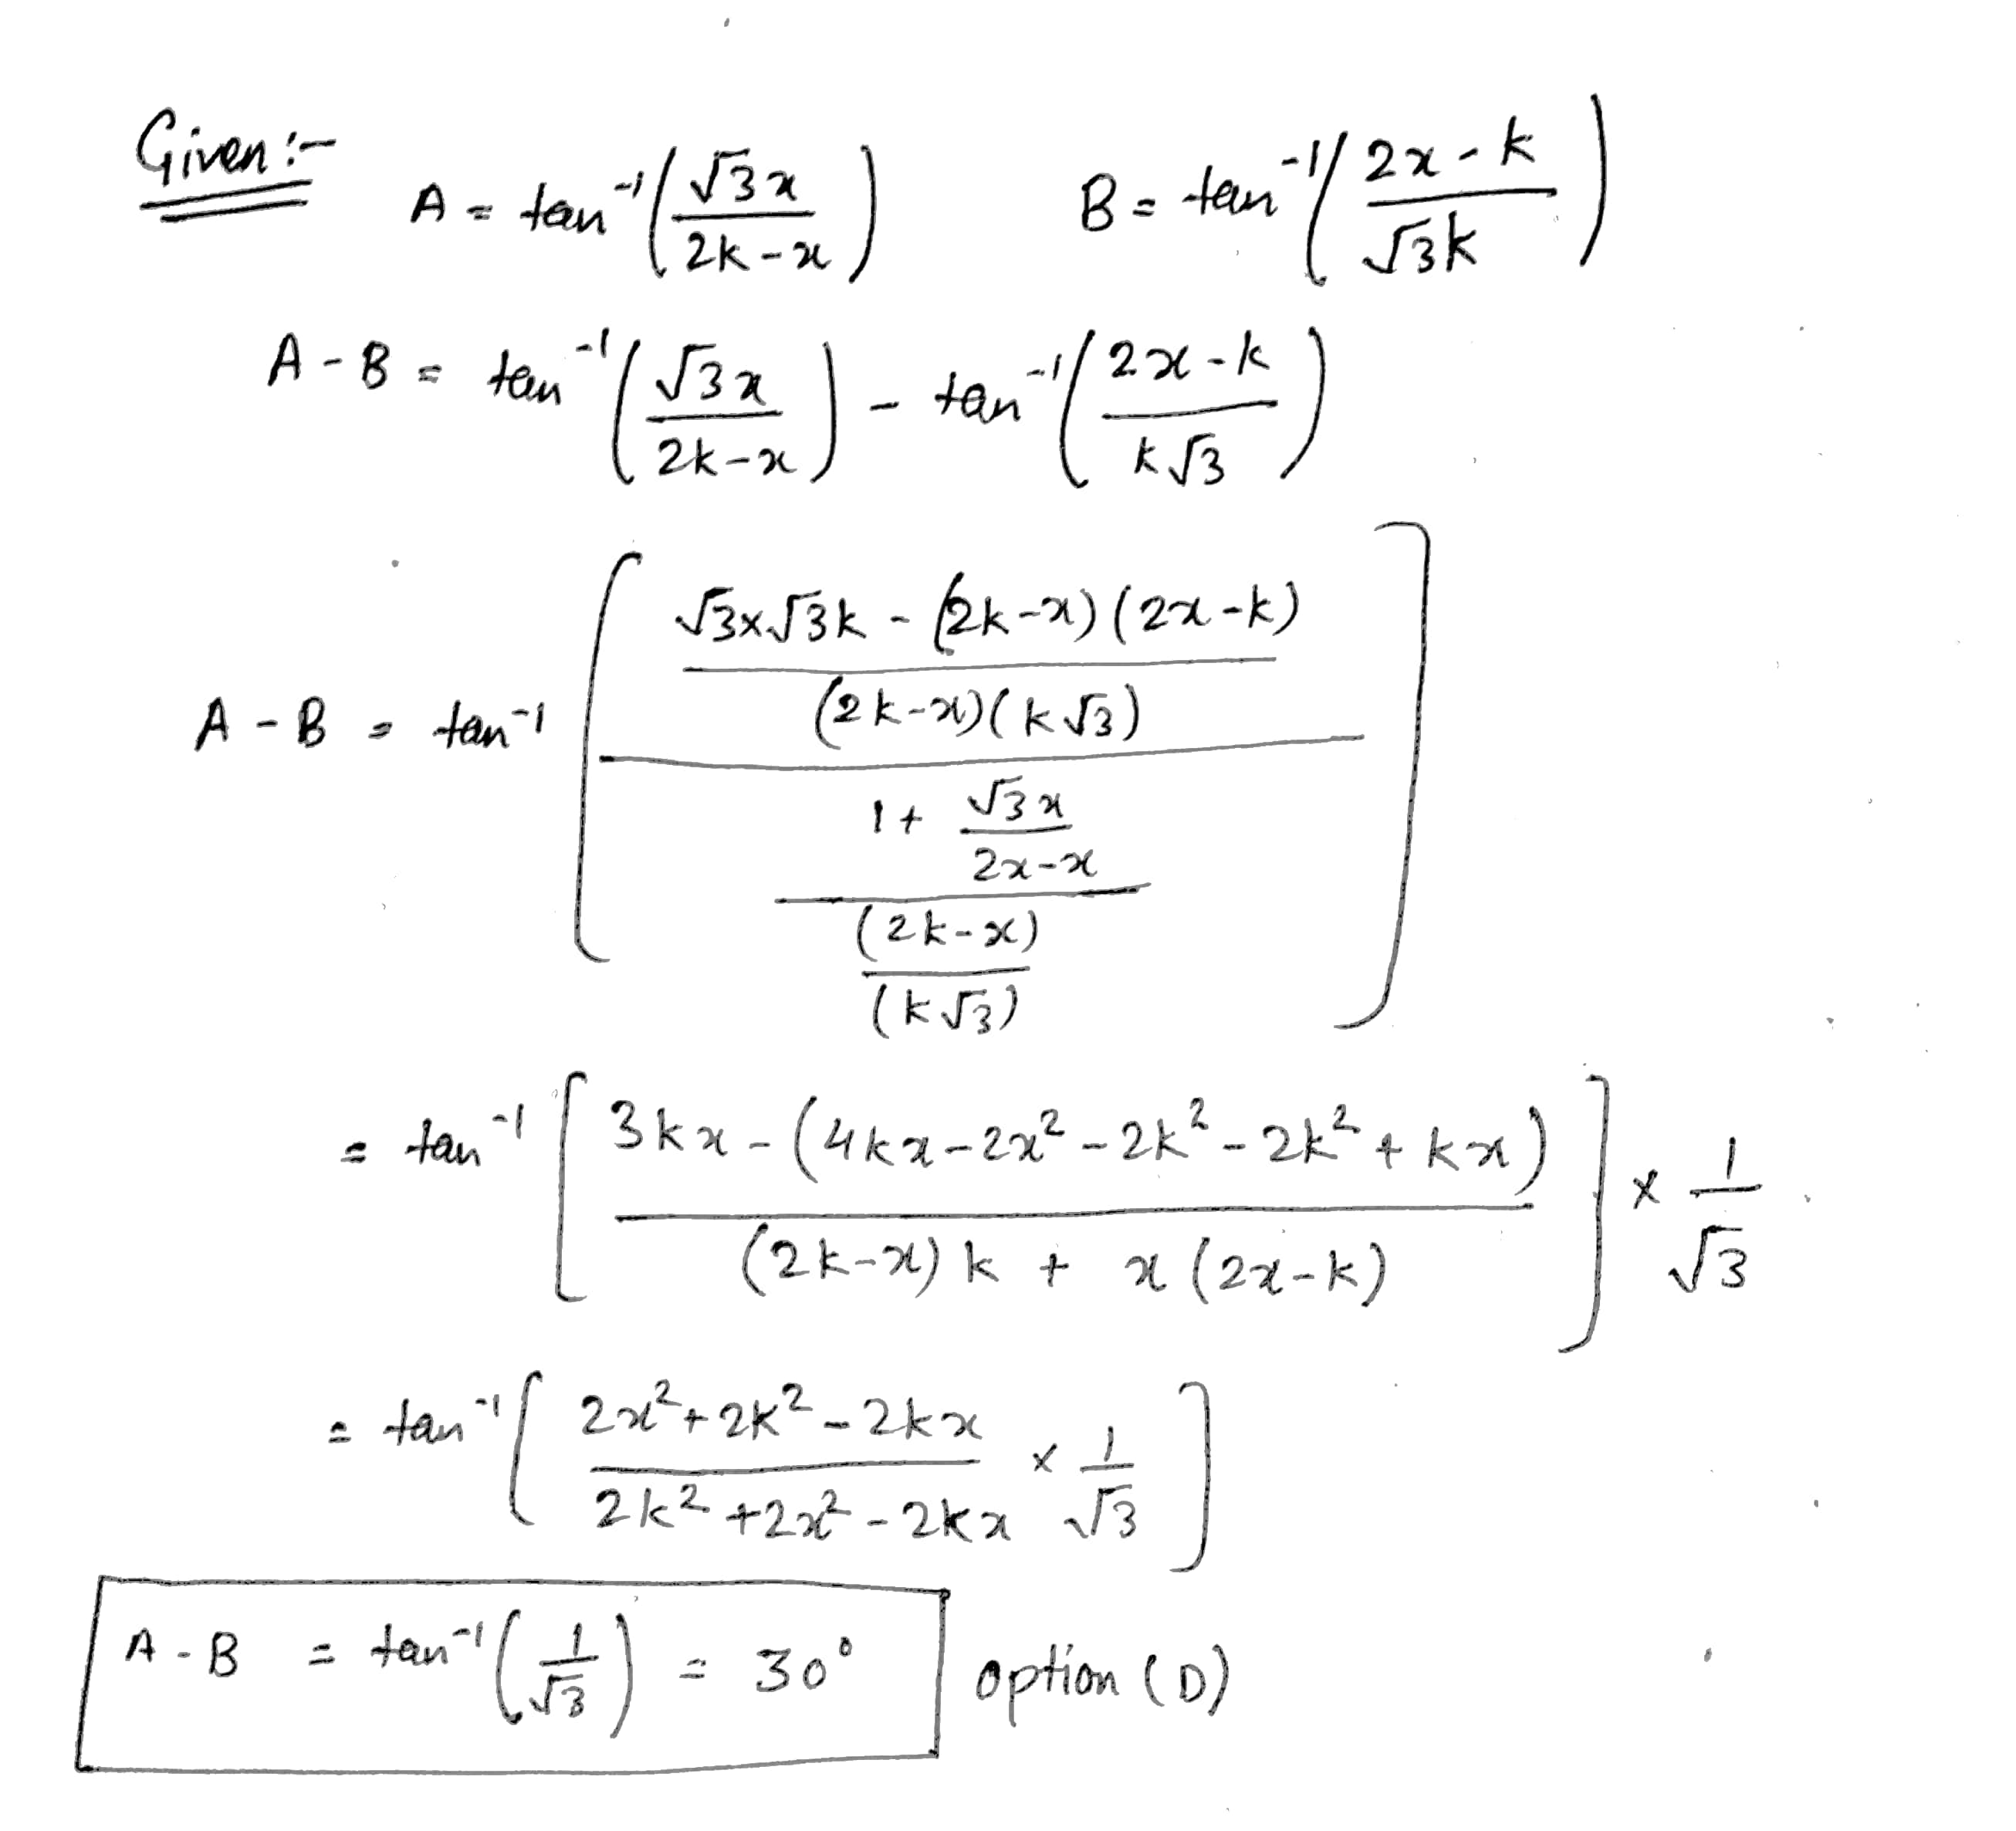 Given:- A = tan⁻¹(√3x / 2k-x) B = tan⁻¹(2x-k / √3k)
A-B = tan⁻¹(√3x / 2k-x) - tan⁻¹(2x-k / k√3)
A-B = tan⁻¹[ √3x√3k - (2k-x)(2x-k)
(2k-x)(k√3)
1 + √3x
2x-x
(2k-x)
(k√3) ]
= tan⁻¹[ 3kx - (4kx-2x²-2k²-2k²+kx) / (2k-x)k + x(2x-k) ] × 1/√3
= tan⁻¹[ 2x²+2k²-2kx / 2k²+2x²-2kx × 1/√3 ]
A-B = tan⁻¹(1/√3) = 30° option (D)